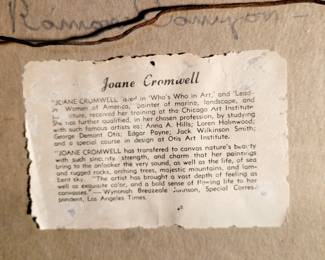 Ramona Canyon -
Joane Cromwell
"JOANE CROMWELL listed in 'Who's Who in Art,' and 'Lead-
in Women of America,' painter of marine, landscape, and
received her training at the Chicago Art Institute
She has further qualified, in her chosen profession, by studying
with such famous artists as: Anna A. Hills; Loren Holmwood;
George Demont Otis; Edgar Payne; Jack Wilkinson Smith;
and a special course in design at Otis Art Institute.
"JOANE CROMWELL has transferred to canvas nature's beauty
with such sincerity, strength, and charm that her paintings
bring to the onlooker the very sound, as well as the life, of sea
and rugged rocks, arching trees, majestic mountains, and
sky. "The artist has brought a vast depth of feeling as
well as exquisite color, and a bold sense of flowing life to her
canvases."—Wynonah Breazeale Johnson, Special Corres-
pondent, Los Angeles Times.